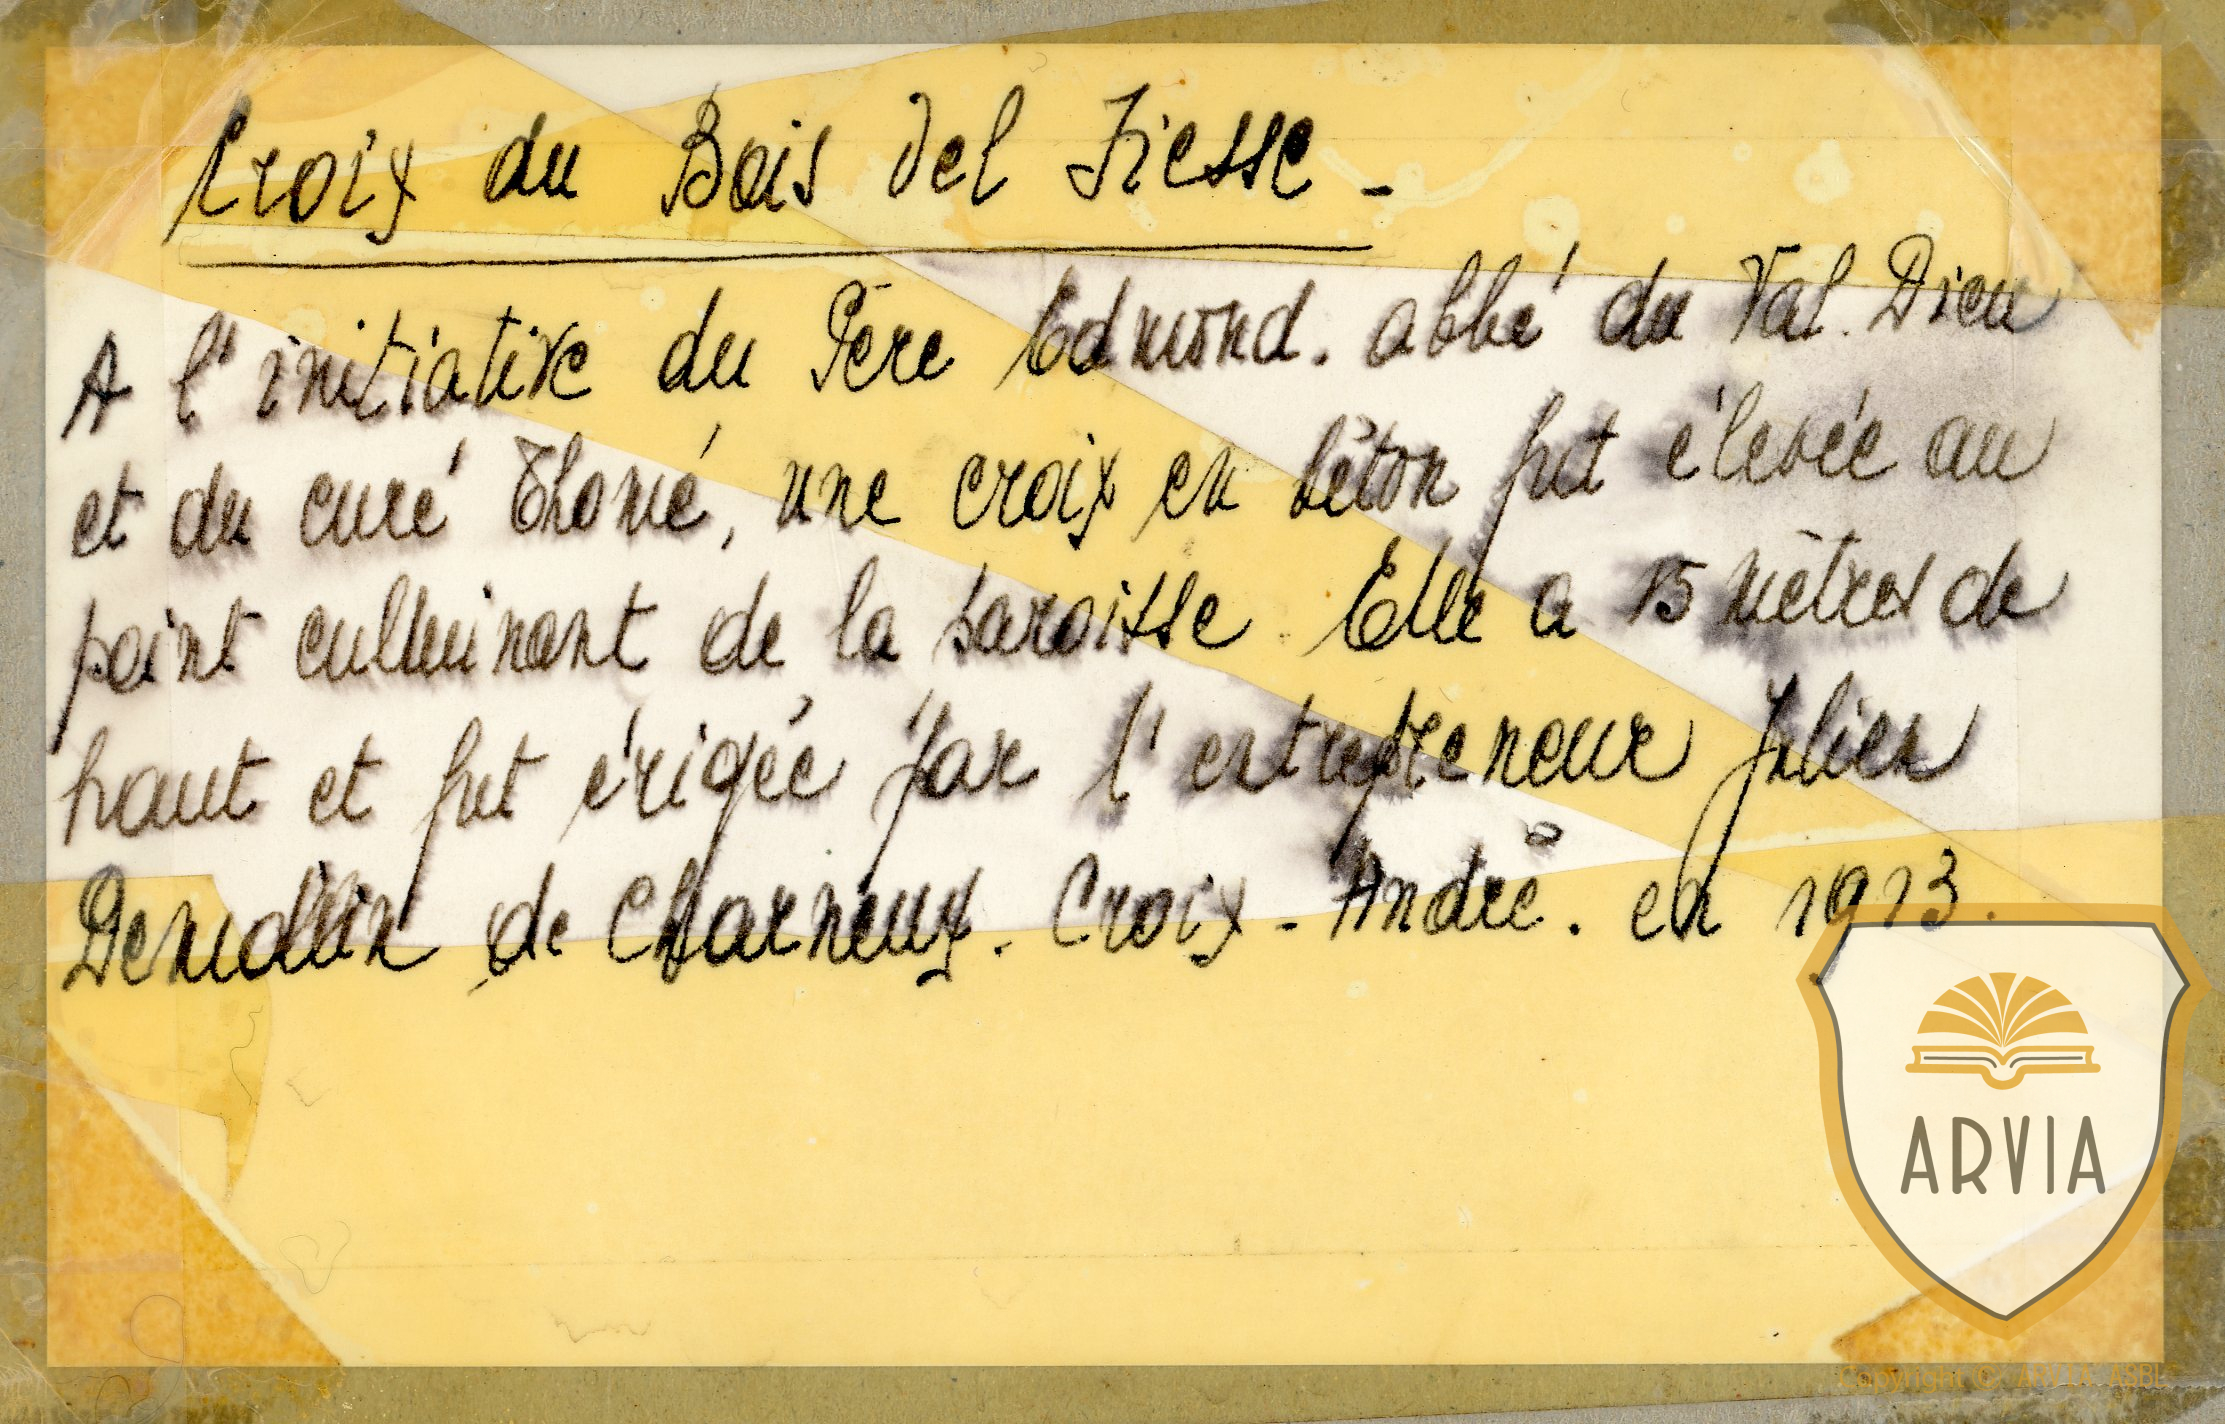 Croix du Bois del Fiesse -
A l'initiative du Père Edmond. abbé du Val. Dieu
et du curé Thomé, une croix en béton fut élevée au
point culminant de la paroisse. Elle a 15 mètres de
haut et fut érigée par l'entrepreneur Julien
de Charneux. Croix - André. en 1913.
ARVIA
Copyright © ARVIA ASBL